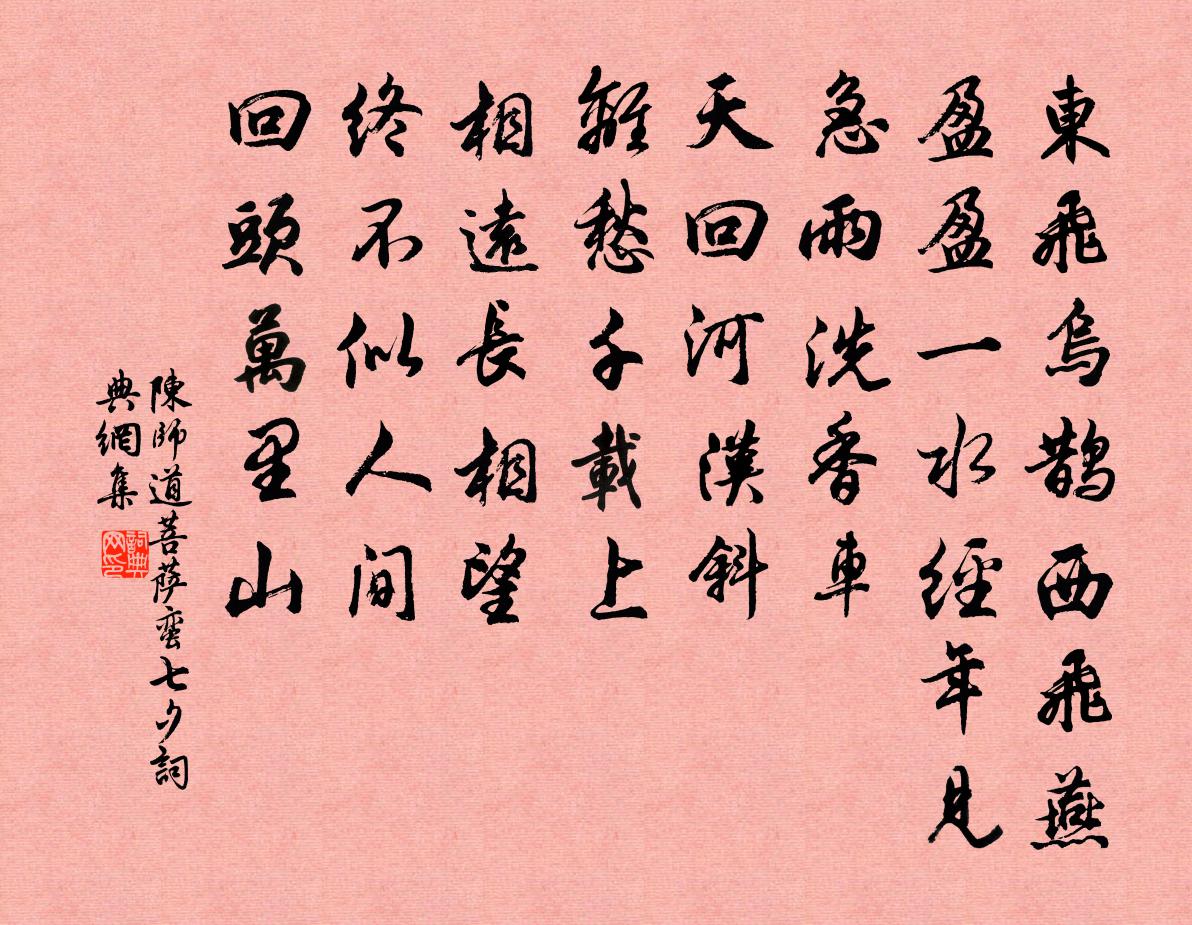 東飛烏鵲西飛燕
盈盈一水經年見
急雨洗香車
天回河漢斜
離愁千載上
相遠長相望
終不似人間
回頭萬里山
陳師道菩薩蛮七夕詞
典網集
詞典網印